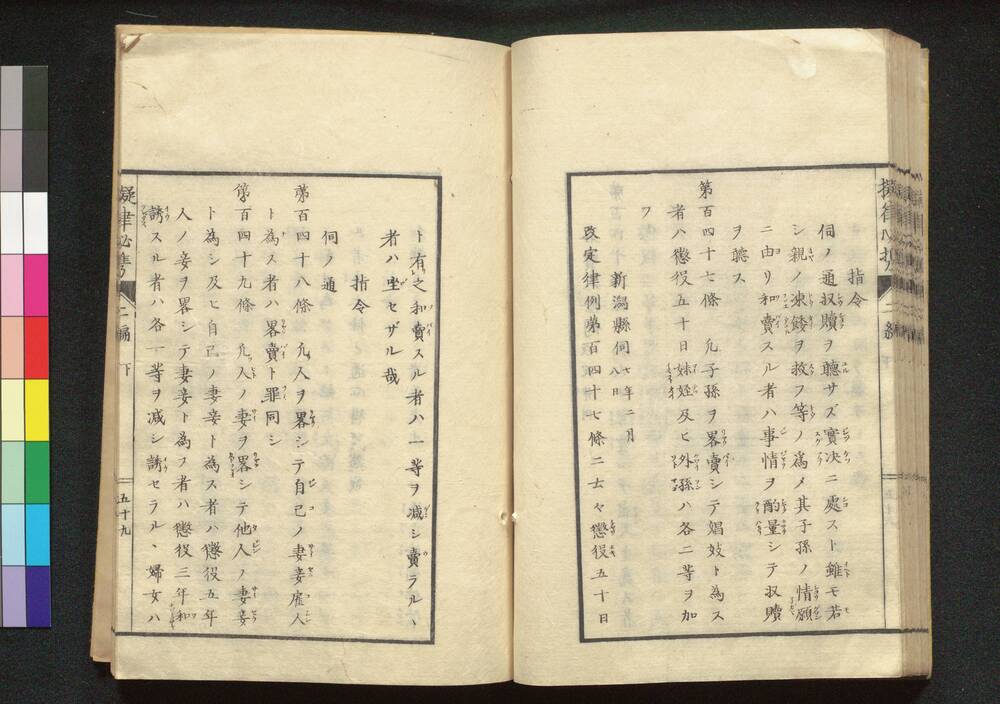 指令
伺ノ通収贖ヲ聽サズ實决ニ處スト雖モ若
シ親ノ凍餒ヲ救フ等ノ爲メ其子孫ノ情願
ニ由リ和賣スル者ハ事情ヲ酌量シテ収贖
ヲ聽ス
第百四十七條 凡子孫ヲ畧賣シテ娼妓ト為ス
者ハ懲役五十日妹姪及ヒ外孫ハ各二等ヲ加
フ
新潟縣伺 七年二月八日
改定律例第百四十七條ニ士々懲役五十日
擬律必携 二編 下
ト有之和賣スル者ハ一等ヲ减シ賣ラルヽ
者ハ坐セザル哉
指令
伺ノ通
第百四十八條 凡人ヲ畧シテ自己ノ妻妾雇人
ト為ス者ハ畧賣ト罪同シ
第百四十九條 凡人ノ妻ヲ畧シテ他人ノ妻妾
ト為シ及ヒ自己ノ妻妾ト為ス者ハ懲役五年
人ノ妾ヲ畧シテ妻妾ト為ス者ハ懲役三年和
誘スル者ハ各一等ヲ减シ誘セラルヽ婦女ハ
擬律必雋 二編 下 五十九